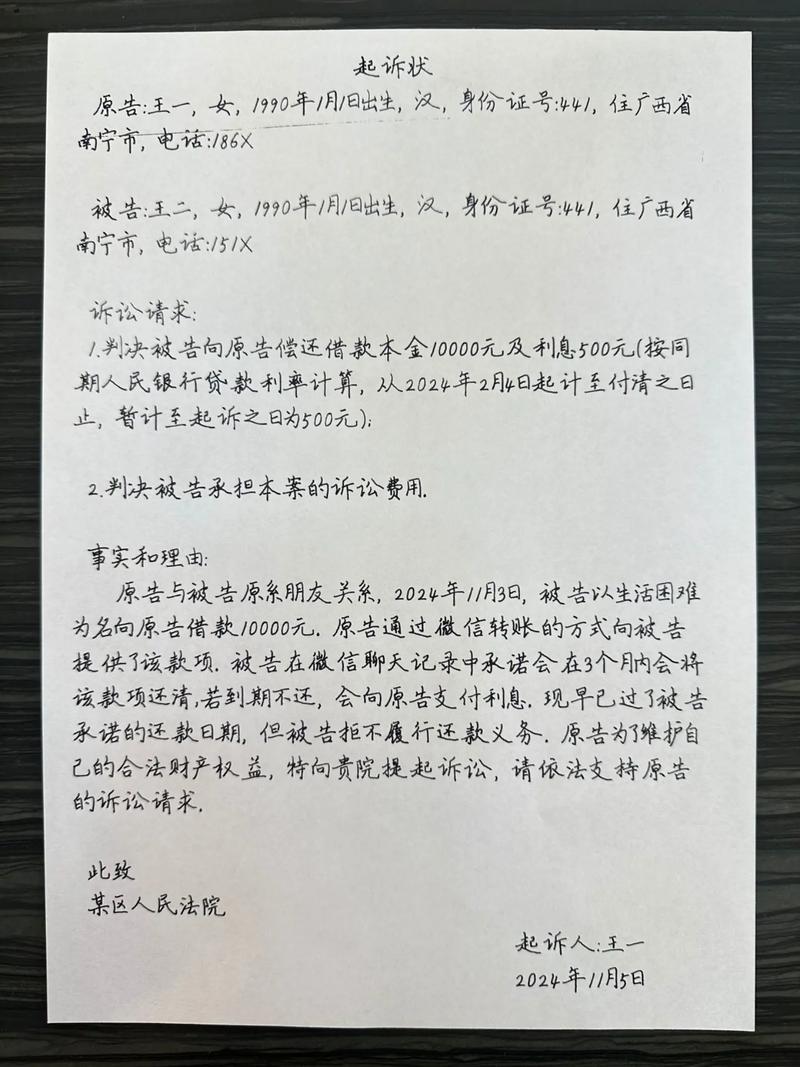 起诉状
原告:王一,女,1990年1月1日出生,汉,身份证号:441,住广西省
南宁市,电话:186X
被告:王二,女,1990年1月1日出生,汉,身份证号:441,住广西省
南宁市,电话:151X
诉讼请求:
1.判决被告向原告偿还借款本金10000元及利息500元(按同
期人民银行贷款利率计算,从2024年2月4日起计至付清之日
止,暂计至起诉之日为500元);
2.判决被告承担本案的诉讼费用.
事实和理由:
原告与被告原系朋友关系,2024年11月3日,被告以生活困难
为名向原告借款10000元.原告通过微信转账的方式向被告
提供了该款项.被告在微信聊天记录中承诺会在3个月内会将
该款项还清,若到期不还,会向原告支付利息.现早已过了被告
承诺的还款日期,但被告拒不履行还款义务.原告为了维护自
己的合法财产权益,特向贵院提起诉讼,请依法支持原告
的诉讼请求.
此致
某区人民法院
起诉人:王一
2024年11月5日